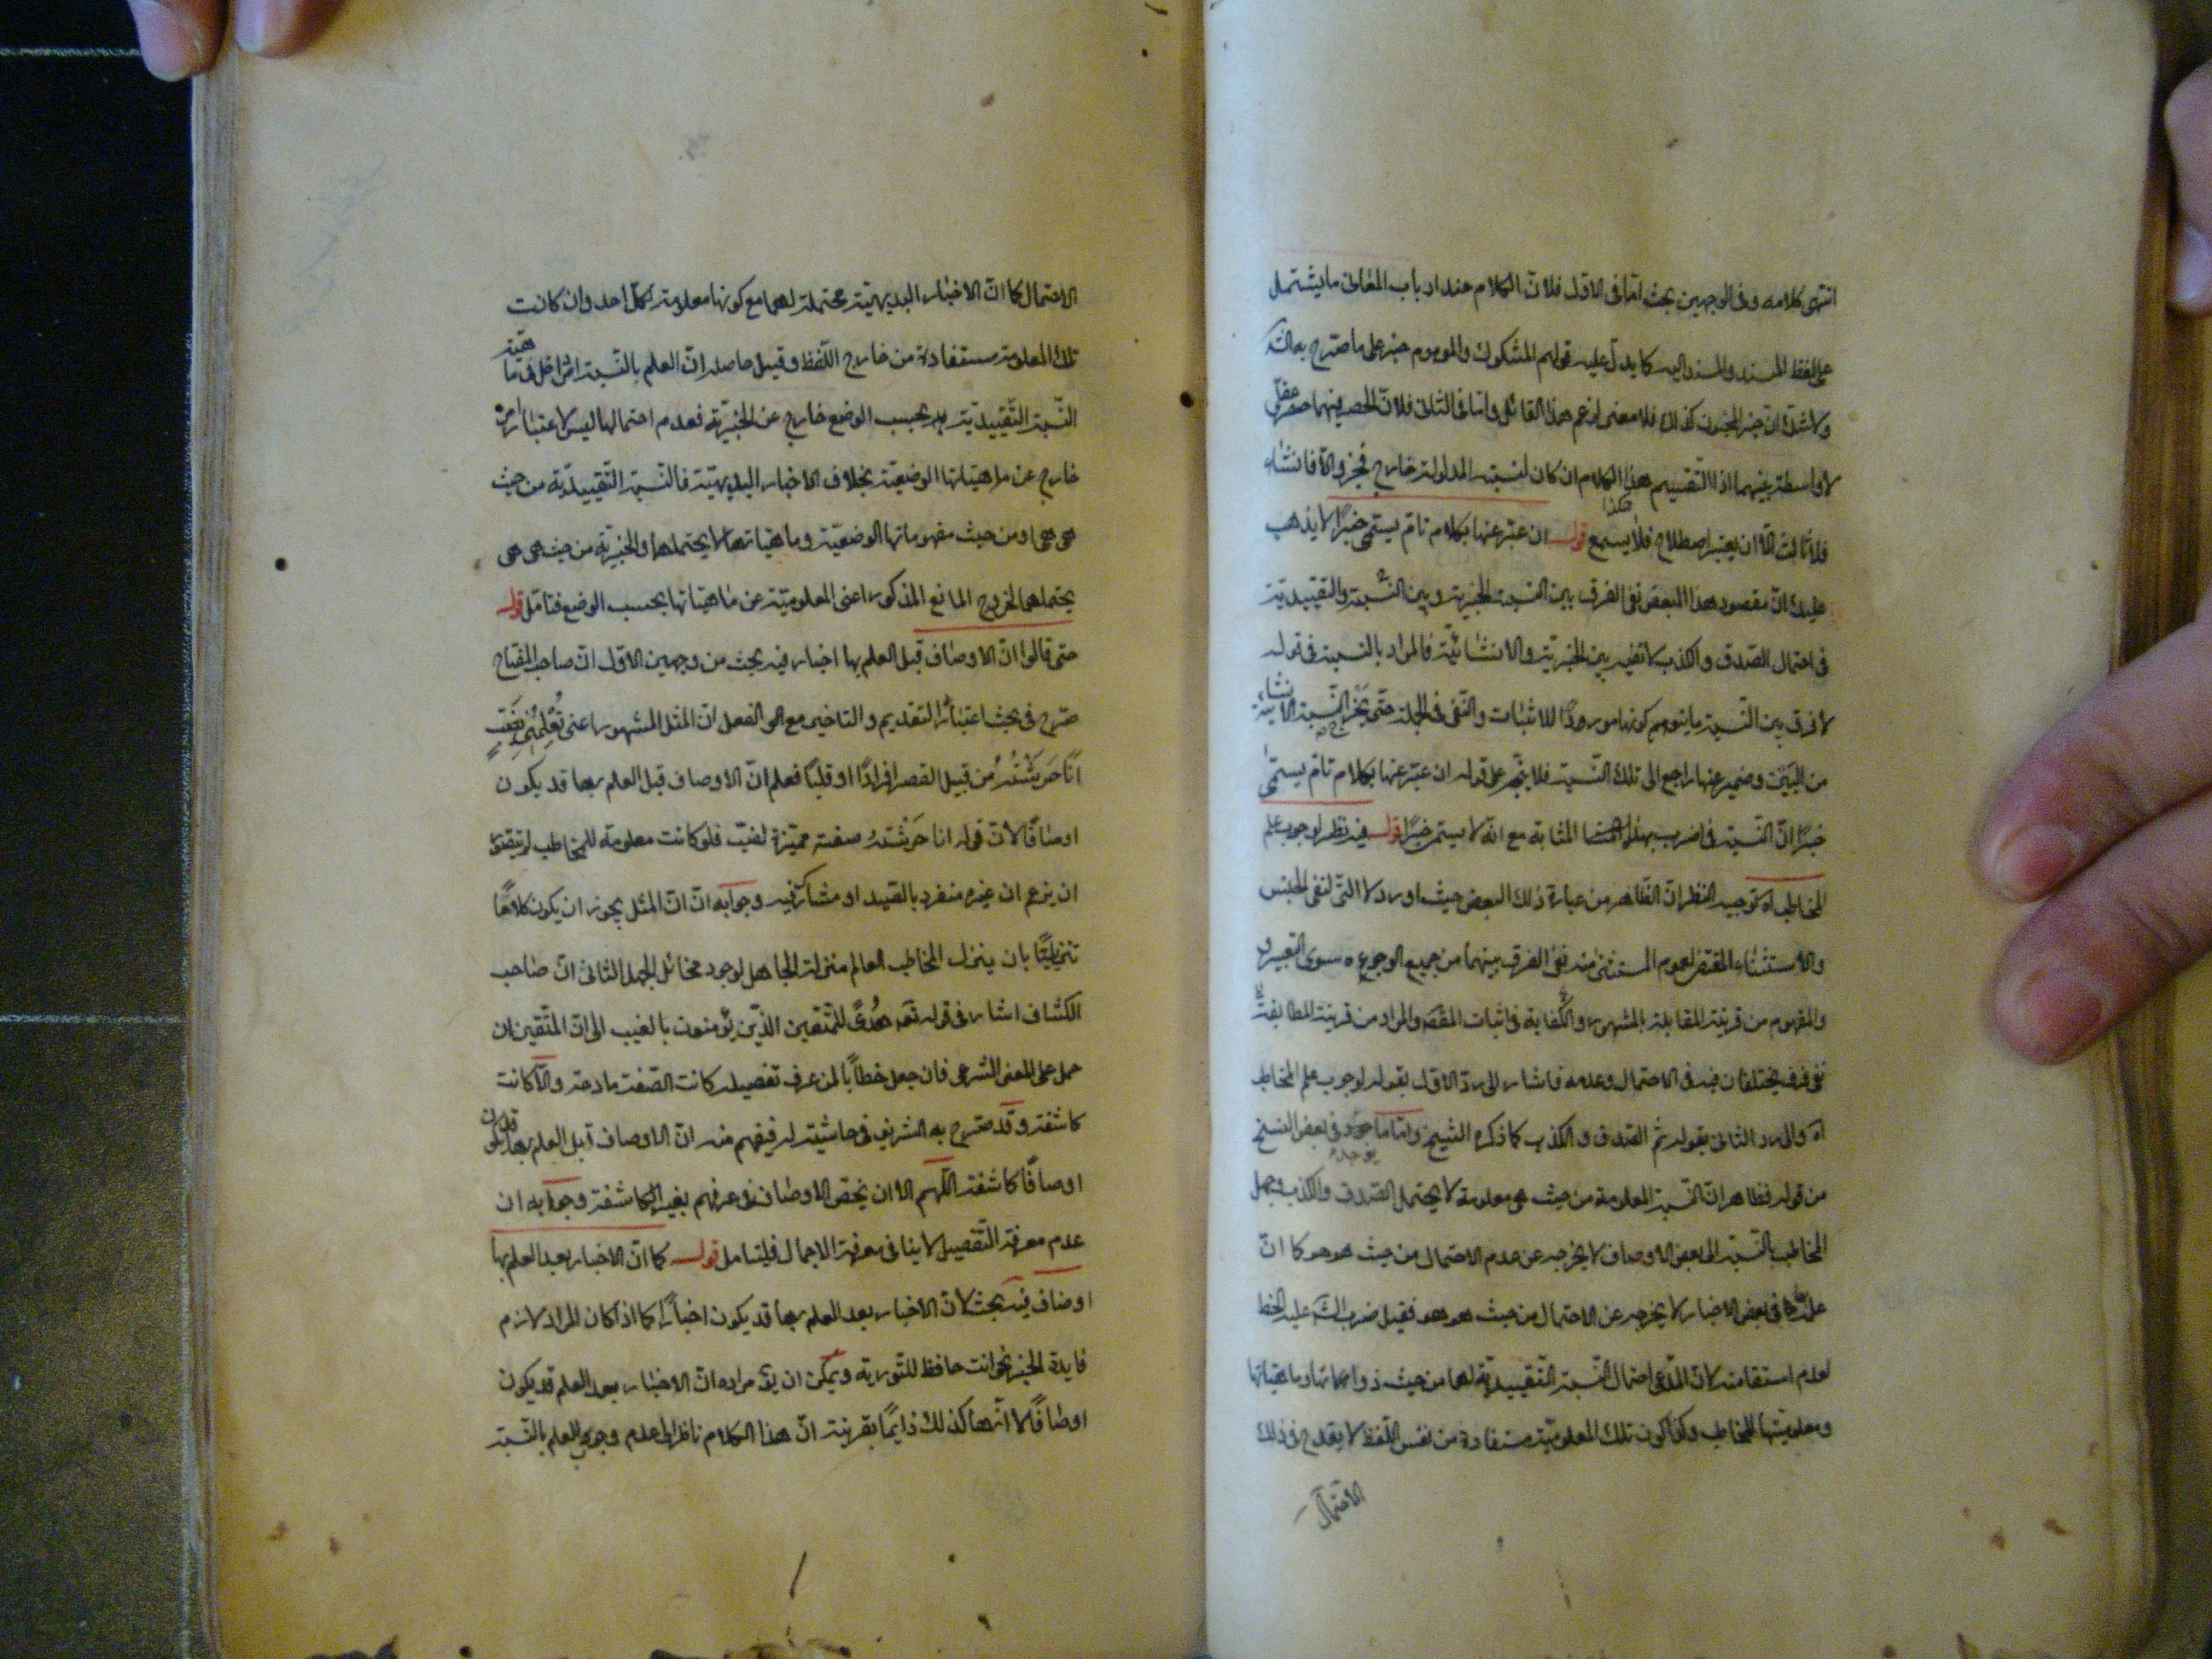 انتهى كلامه وفى الوجهين بحث امّا فى الاوّل فلانّ الكلام عند ارباب المعانى ما يشتمل
على لفظ المسند والمسند اليه كما يدلّ عليه قولهم المشكوك والموهوم خبر على ما صرّح به
ولا شكّ انّ خبر المجنون كذلك فلا معنى لزعم هذا القائل وامّا فى الثانى فلانّ الحصر فيهما حصر عقلى
لا واسطة بينهما اذا التقسيم هكذا الكلام ان كان لنسبته المدلولة خارج فخبر والّا فانشاء
فلا ثالث الّا ان يعتبر اصطلاح فلا يسمع قوله ان عبّر عنها بكلام تامّ يسمّى خبرًا لا يذهب
عليك انّ مقصود هذا البعض نفى الفرق بين النسبة الخبرية وبين النسبة التقييديّة
فى احتمال الصّدق والكذب لا نفيه بين الخبريّة والانشائيّة فالمراد بالنسبة فى قوله
لا فرق بين النّسبة ما يتوهم كونها موردًا للاثبات والنّفى فى الجملة حتّى يخرج النّسبة الانشائيّة
من البين وضمير عنها راجع الى تلك النّسبة فلا يتّجه على قوله ان عبّر عنها بكلام تامّ يسمّى
خبرًا انّ النّسبة فى اضرب بهذه المثابة مع انّه لا يسمّى خبرًا قوله فيه نظر لوجوب علم
المخاطب اه توجيه النظر انّ الظّاهر من عبارة ذلك البعض حيث اورد لا التى لنفى الجنس
والاستثناء المقتضى لعموم المستثنى منه نفى الفرق بينهما من جميع الوجوه سوى التعبير
والمفهوم من قرينة المقابلة بالمشهور والكفاية فى اثبات المقصد والمراد من قرينة المطابقة
نفى فرق يختلفان فيه فى الاحتمال وعدمه فاشار الى ردّ الاوّل بقوله لوجوب علم المخاطب
اه والى ردّ الثانى بقوله ثم الصّدق والكذب كما ذكره الشيخ وامّا ما يوجد فى بعض النسخ
من قوله فظاهر انّ النّسبة المعلومة من حيث هى معلومة لا يحتمل الصّدق والكذب وجهل
المخاطب بالنّسبة الى بعض الاوصاف لا يخرجه عن عدم الاحتمال من حيث هو هو كما انّ
علمه بها فى بعض الاخبار لا يخرجه عن الاحتمال من حيث هو هو فقيل ضرب عليه الخط
لعدم استقامته لانّ المدّعى احتمال النّسبة التّقييديّة لهما من حيث ذواتها وماهيّاتها
ومعلوميّتها للمخاطب وكذا كون تلك المعلوميّة مستفادة من نفس اللّفظ لا يقدح فى ذلك
الاحتمال
الاحتمال كما انّ الاخبار البديهيّة محتملة لهما مع كونها معلومة لكلّ احد وان كانت
تلك المعلوميّة مستفادة من خارج اللّفظ وقيل حاصله انّ العلم بالنّسبة امر داخل فى ماهيّة
النّسبة التّقييديّة بحسب الوضع خارج عن الخبريّة فعدم احتمالها ليس لاعتبار امر
خارج عن ماهيّاتها الوضعيّة بخلاف الاخبار البديهيّة فالنّسبة التّقييديّة من حيث
هى هى او من حيث مفهوماتها الوضعيّة وماهيّاتها لا يحتملهما والخبريّة من حيث هى هى
يحتملهما لخروج المانع المذكور اعنى المعلوميّة عن ماهيّاتها بحسب الوضع فتامّل قوله
حتى قالوا انّ الاوصاف قبل العلم بها اخبار فيه بحث من وجهين الاوّل انّ صاحب المفتاح
صرّح فى بحث اعتبار التقديم والتاخير مع الفعل انّ المثل المشهور اعنى تُعْلِمُنِى بِضَبٍّ
انا حَرَشْتُهُ من قبيل القصر افرادًا او قلبًا فعلم انّ الاوصاف قبل العلم بها قد يكون
اوصافًا لانّ قوله انا حَرَشْتُهُ صفة مميّزة لضبّ فلو كانت معلومة للمخاطب لم يتصوّر
ان يزعم ان غيره منفرد بالصّيد او مشارك فيه وجوابه انّ المثل يجوز ان يكون كلامًا
تنزيليًّا بان ينزل المخاطب العالم منزلة الجاهل لوجود مخائل الجهل الثانى انّ صاحب
الكشّاف اشار فى قوله تعه هُدًى للمتّقين الذّين يؤمنون بالغيب الى انّ المتّقين ان
حمل على المعنى الشّرعى فان جعل خطابًا لمن عرف تفصيله كانت الصّفة مادحة والّا كانت
كاشفة وقد صرّح به الشريف فى حاشيته له فيفهم منه انّ الاوصاف قبل العلم بها قد يكون
اوصافًا كاشفة اللّهم الّا ان يختصّ الاوصاف فى عرفهم بغير الكاشفة وجوابه ان
عدم معرفة التّفصيل لا ينافى معرفة الاجمال فليتامل قوله كما انّ الاخبار بعد العلم بها
اوصاف فيه بحث لانّ الاخبار بعد العلم بها قد يكون اخبارًا كما اذا كان المراد لازم
فايدة الخبر نحو انت حافظ للتّورية ويمكن ان يقٓ مراده انّ الاخبار بعد العلم قد يكون
اوصافًا لا انّها كذلك دايمًا بقرينة انّ هذا الكلام ناظر الى عدم وجوب العلم بالنّسبة